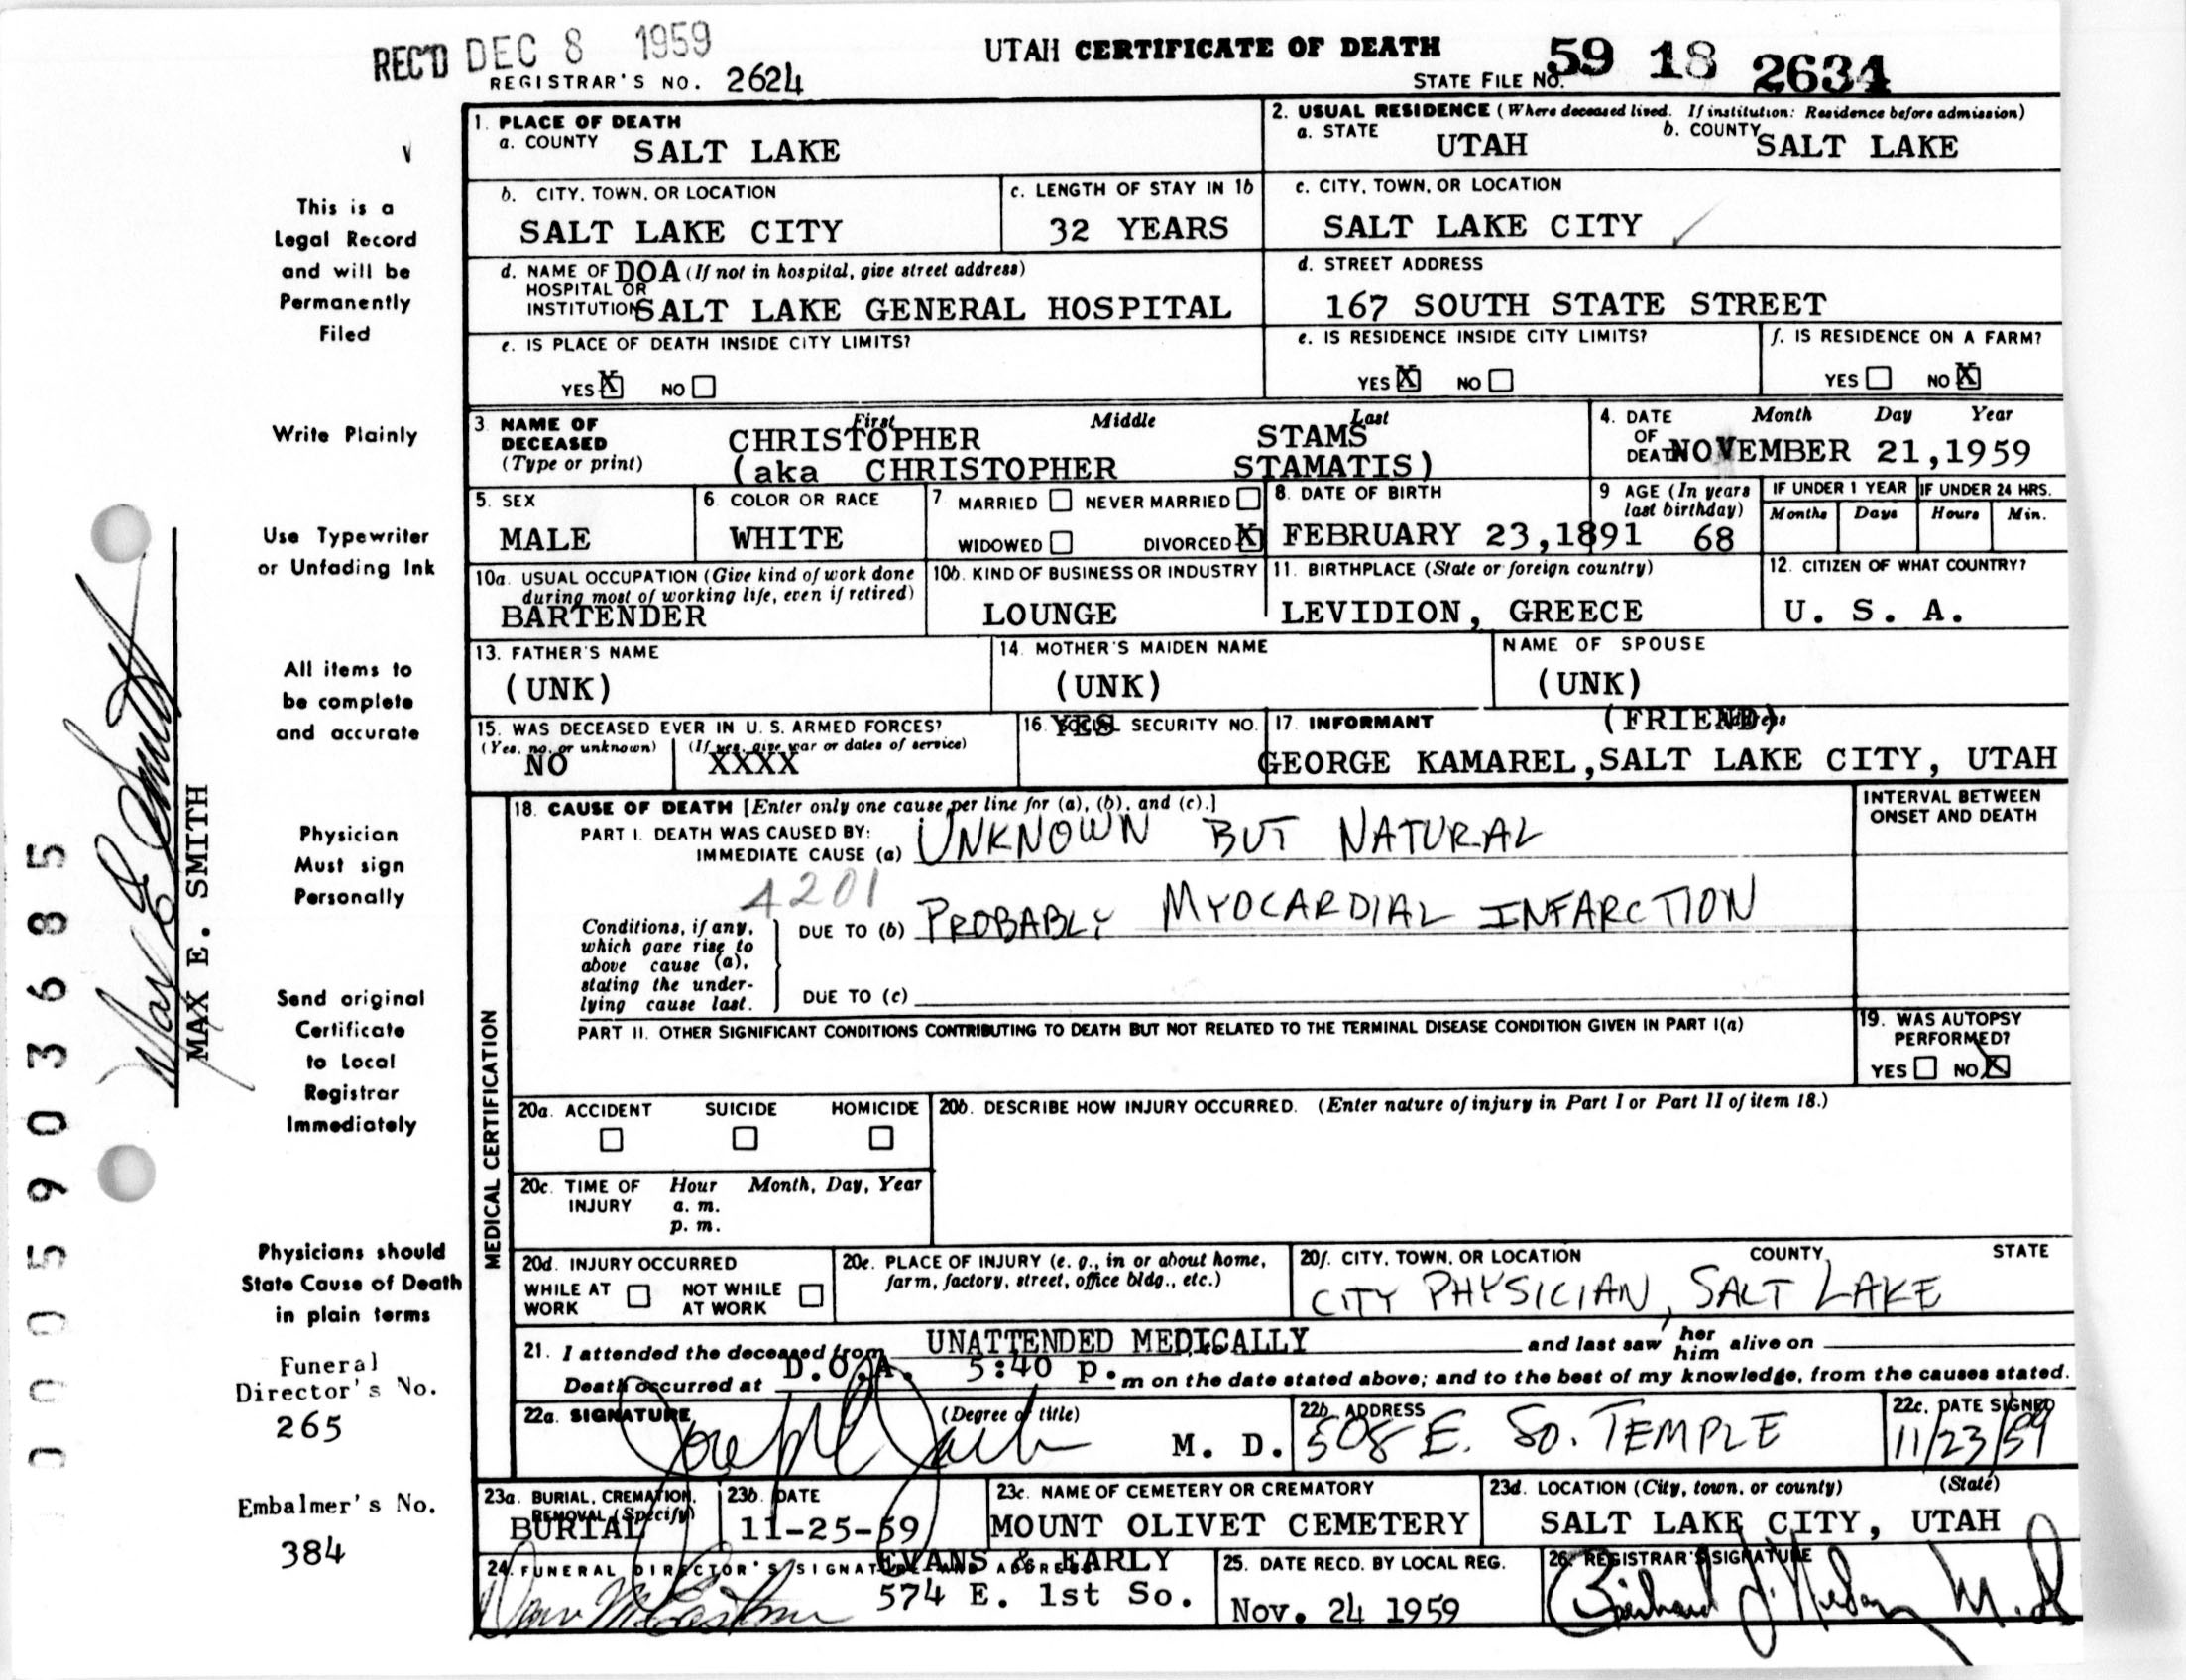 REC'D DEC 8 1959
UTAH CERTIFICATE OF DEATH
REGISTRAR'S NO. 2624
STATE FILE NO. 59 18 2634
1. PLACE OF DEATH
a. COUNTY SALT LAKE
2. USUAL RESIDENCE (Where deceased lived. If institution: Residence before admission)
a. STATE UTAH b. COUNTY SALT LAKE
b. CITY, TOWN, OR LOCATION
SALT LAKE CITY
c. LENGTH OF STAY IN 1b
32 YEARS
c. CITY, TOWN, OR LOCATION
SALT LAKE CITY
d. NAME OF DOA (If not in hospital, give street address)
HOSPITAL OR
INSTITUTION SALT LAKE GENERAL HOSPITAL
d. STREET ADDRESS
167 SOUTH STATE STREET
e. IS PLACE OF DEATH INSIDE CITY LIMITS?
YES X NO
e. IS RESIDENCE INSIDE CITY LIMITS?
YES X NO
f. IS RESIDENCE ON A FARM?
YES NO X
3. NAME OF DECEASED (Type or print)
First Middle Last
CHRISTOPHER STAMS
(aka CHRISTOPHER STAMATIS)
4. DATE OF DEATH Month Day Year
NOVEMBER 21,1959
5. SEX
MALE
6. COLOR OR RACE
WHITE
7 MARRIED NEVER MARRIED
WIDOWED DIVORCED X
8. DATE OF BIRTH
FEBRUARY 23,1891
9 AGE (In years last birthday)
68
IF UNDER 1 YEAR IF UNDER 24 HRS.
Months Days Hours Min.
10a. USUAL OCCUPATION (Give kind of work done during most of working life, even if retired)
BARTENDER
10b. KIND OF BUSINESS OR INDUSTRY
LOUNGE
11. BIRTHPLACE (State or foreign country)
LEVIDION, GREECE
12. CITIZEN OF WHAT COUNTRY?
U. S. A.
13. FATHER'S NAME
(UNK)
14. MOTHER'S MAIDEN NAME
(UNK)
NAME OF SPOUSE
(UNK)
15. WAS DECEASED EVER IN U. S. ARMED FORCES?
(Yes, no, or unknown) (If yes, give war or dates of service)
NO XXXX
16. SOCIAL SECURITY NO.
YES
17. INFORMANT Address
(FRIEND)
GEORGE KAMAREL,SALT LAKE CITY, UTAH
MEDICAL CERTIFICATION
18. CAUSE OF DEATH [Enter only one cause per line for (a), (b), and (c).]
INTERVAL BETWEEN ONSET AND DEATH
PART I. DEATH WAS CAUSED BY:
IMMEDIATE CAUSE (a) UNKNOWN BUT NATURAL
4201
Conditions, if any, which gave rise to above cause (a), stating the underlying cause last.
DUE TO (b) PROBABLY MYOCARDIAL INFARCTION
DUE TO (c)
PART II. OTHER SIGNIFICANT CONDITIONS CONTRIBUTING TO DEATH BUT NOT RELATED TO THE TERMINAL DISEASE CONDITION GIVEN IN PART I(a)
19. WAS AUTOPSY PERFORMED?
YES NO X
20a. ACCIDENT SUICIDE HOMICIDE
20b. DESCRIBE HOW INJURY OCCURRED. (Enter nature of injury in Part I or Part II of item 18.)
20c. TIME OF INJURY Hour Month, Day, Year
a. m.
p. m.
20d. INJURY OCCURRED
WHILE AT WORK NOT WHILE AT WORK
20e. PLACE OF INJURY (e. g., in or about home, farm, factory, street, office bldg., etc.)
20f. CITY, TOWN, OR LOCATION COUNTY STATE
CITY PHYSICIAN, SALT LAKE
21. I attended the deceased from UNATTENDED MEDICALLY and last saw her him alive on
Death occurred at D.O.A. 5:40 p. m on the date stated above; and to the best of my knowledge, from the causes stated.
22a. SIGNATURE (Degree or title)
M. D.
22b. ADDRESS
508 E. SO. TEMPLE
22c. DATE SIGNED
11/23/59
23a. BURIAL, CREMATION, REMOVAL (Specify)
BURIAL
23b. DATE
11-25-59
23c. NAME OF CEMETERY OR CREMATORY
MOUNT OLIVET CEMETERY
23d. LOCATION (City, town, or county) (State)
SALT LAKE CITY, UTAH
24. FUNERAL DIRECTOR'S SIGNATURE AND ADDRESS
EVANS & EARLY
574 E. 1st So.
25. DATE RECD. BY LOCAL REG.
Nov. 24 1959
26. REGISTRAR'S SIGNATURE
This is a
Legal Record
and will be
Permanently
Filed
Write Plainly
Use Typewriter
or Unfading Ink
All items to
be complete
and accurate
Physician
Must sign
Personally
Send original
Certificate
to Local
Registrar
Immediately
Physicians should
State Cause of Death
in plain terms
Funeral
Director's No.
265
Embalmer's No.
384
Max E Smith
MAX E. SMITH
0005903685